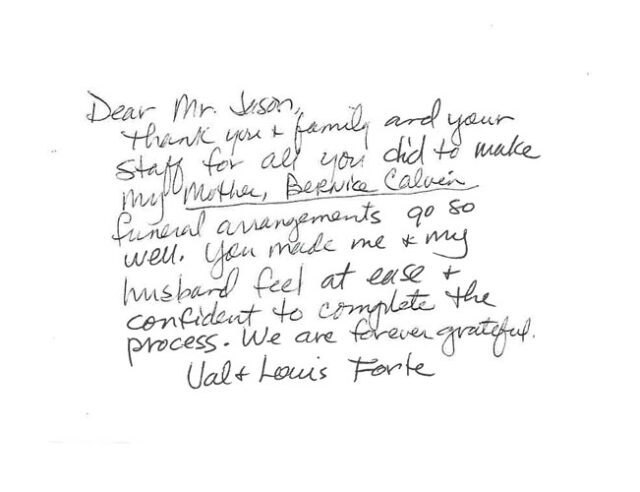 Dear Mr. Jason,
thank you & family and your
staff for all you did to make
my Mother, Bernice Calvin
funeral arrangements go so
well. You made me & my
husband feel at ease &
confident to complete the
process. We are forever grateful.
Val & Louis Forte